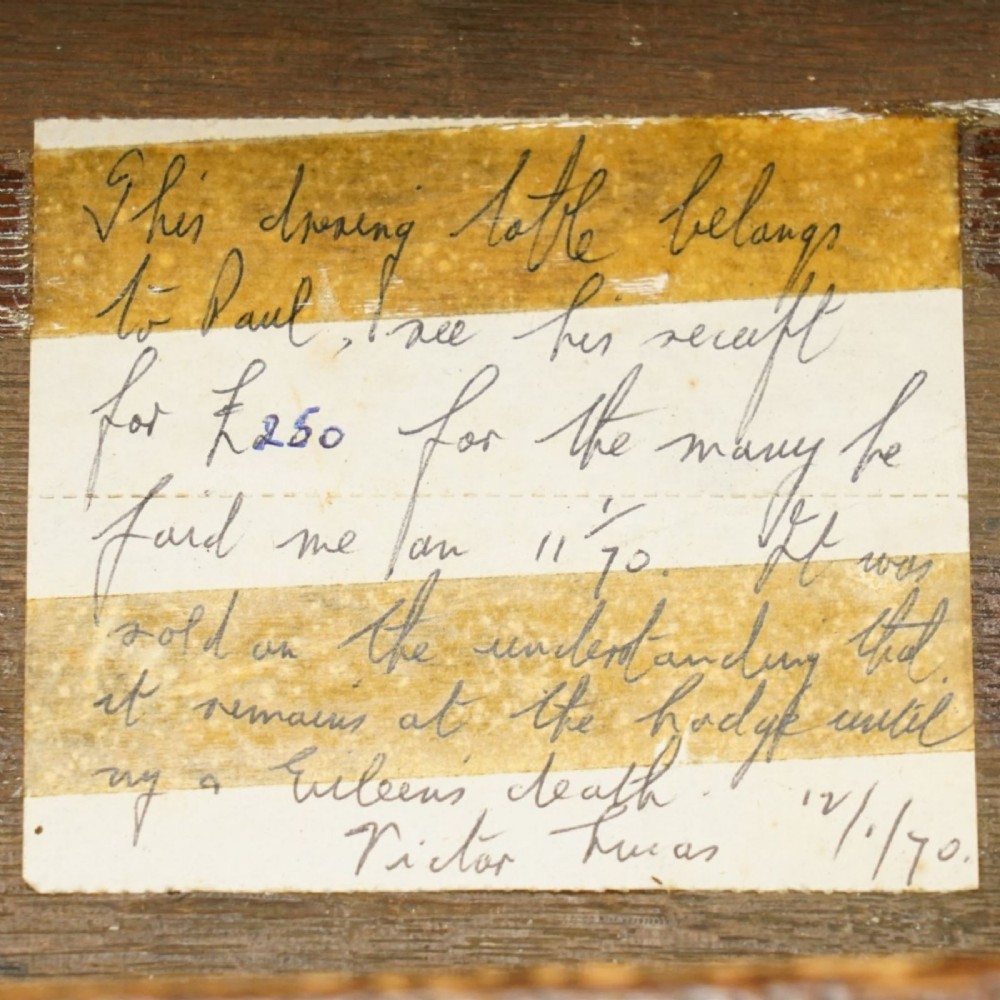 This dressing table belongs
to Paul, I see his receipt
for £250 for the money he
paid me on 11/1/70. It was
sold on the understanding that
it remains at the Lodge until
my & Eileen's death.
Victor Lucas 12/1/70.